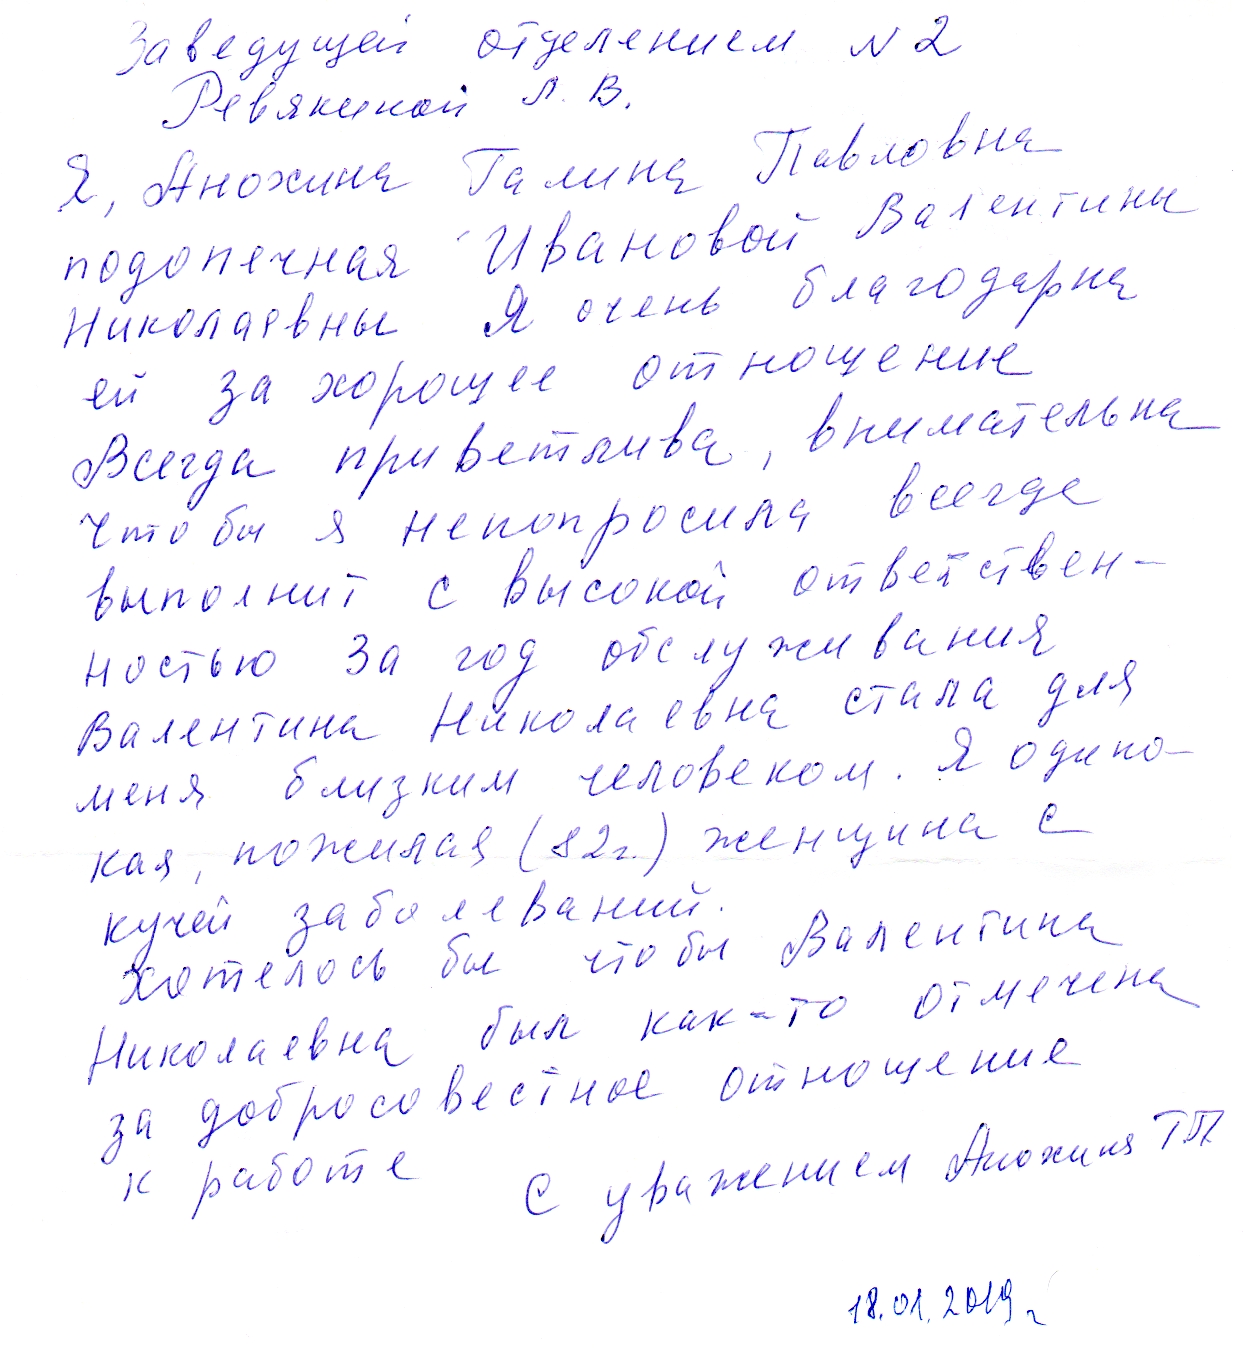 Заведущей отделением N 2
Ревякиной Л. В.
Я, Анохина Галина Павловна
подопечная Ивановой Валентины
Николаевны Я очень благодарна
ей за хорошее отношение
Всегда приветлива, внимательна
Что бы я непопросила всегда
выполнит с высокой ответствен-
ностью За год обслуживания
Валентина Николаевна стала для
меня близким человеком. Я одино-
кая, пожилая (82г.) женщина с
кучей заболеваний.
Хотелось бы чтобы Валентина
Николаевна был как-то отмечена
за добросовестное отношение
к работе
С уважением Анохина ТП
18.01.2019г